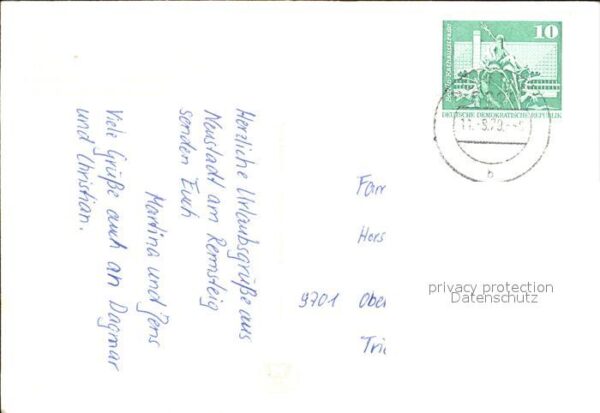 Herzliche Urlaubsgrüße aus
Neustadt am Rennsteig
senden Euch
Martina und Jens
Viele Grüße auch an Dagmar
und Christian.
10
DEUTSCHE DEMOKRATISCHE REPUBLIK
b
Fam
Hors
9701 Ober
Trie
privacy protection
Datenschutz